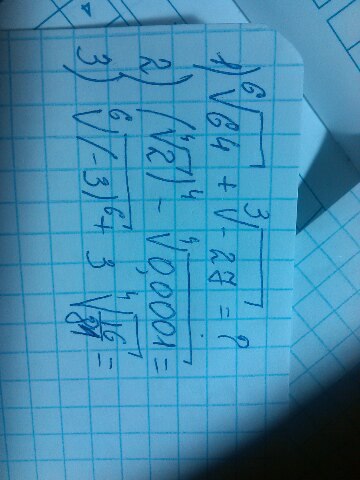 1) ⁶√64 + ³√-27 = ?
2) (⁴√2)⁴ - ⁴√0,0001 =
3) ⁶√(-3)⁶ + 3 ⁴√16/81 =